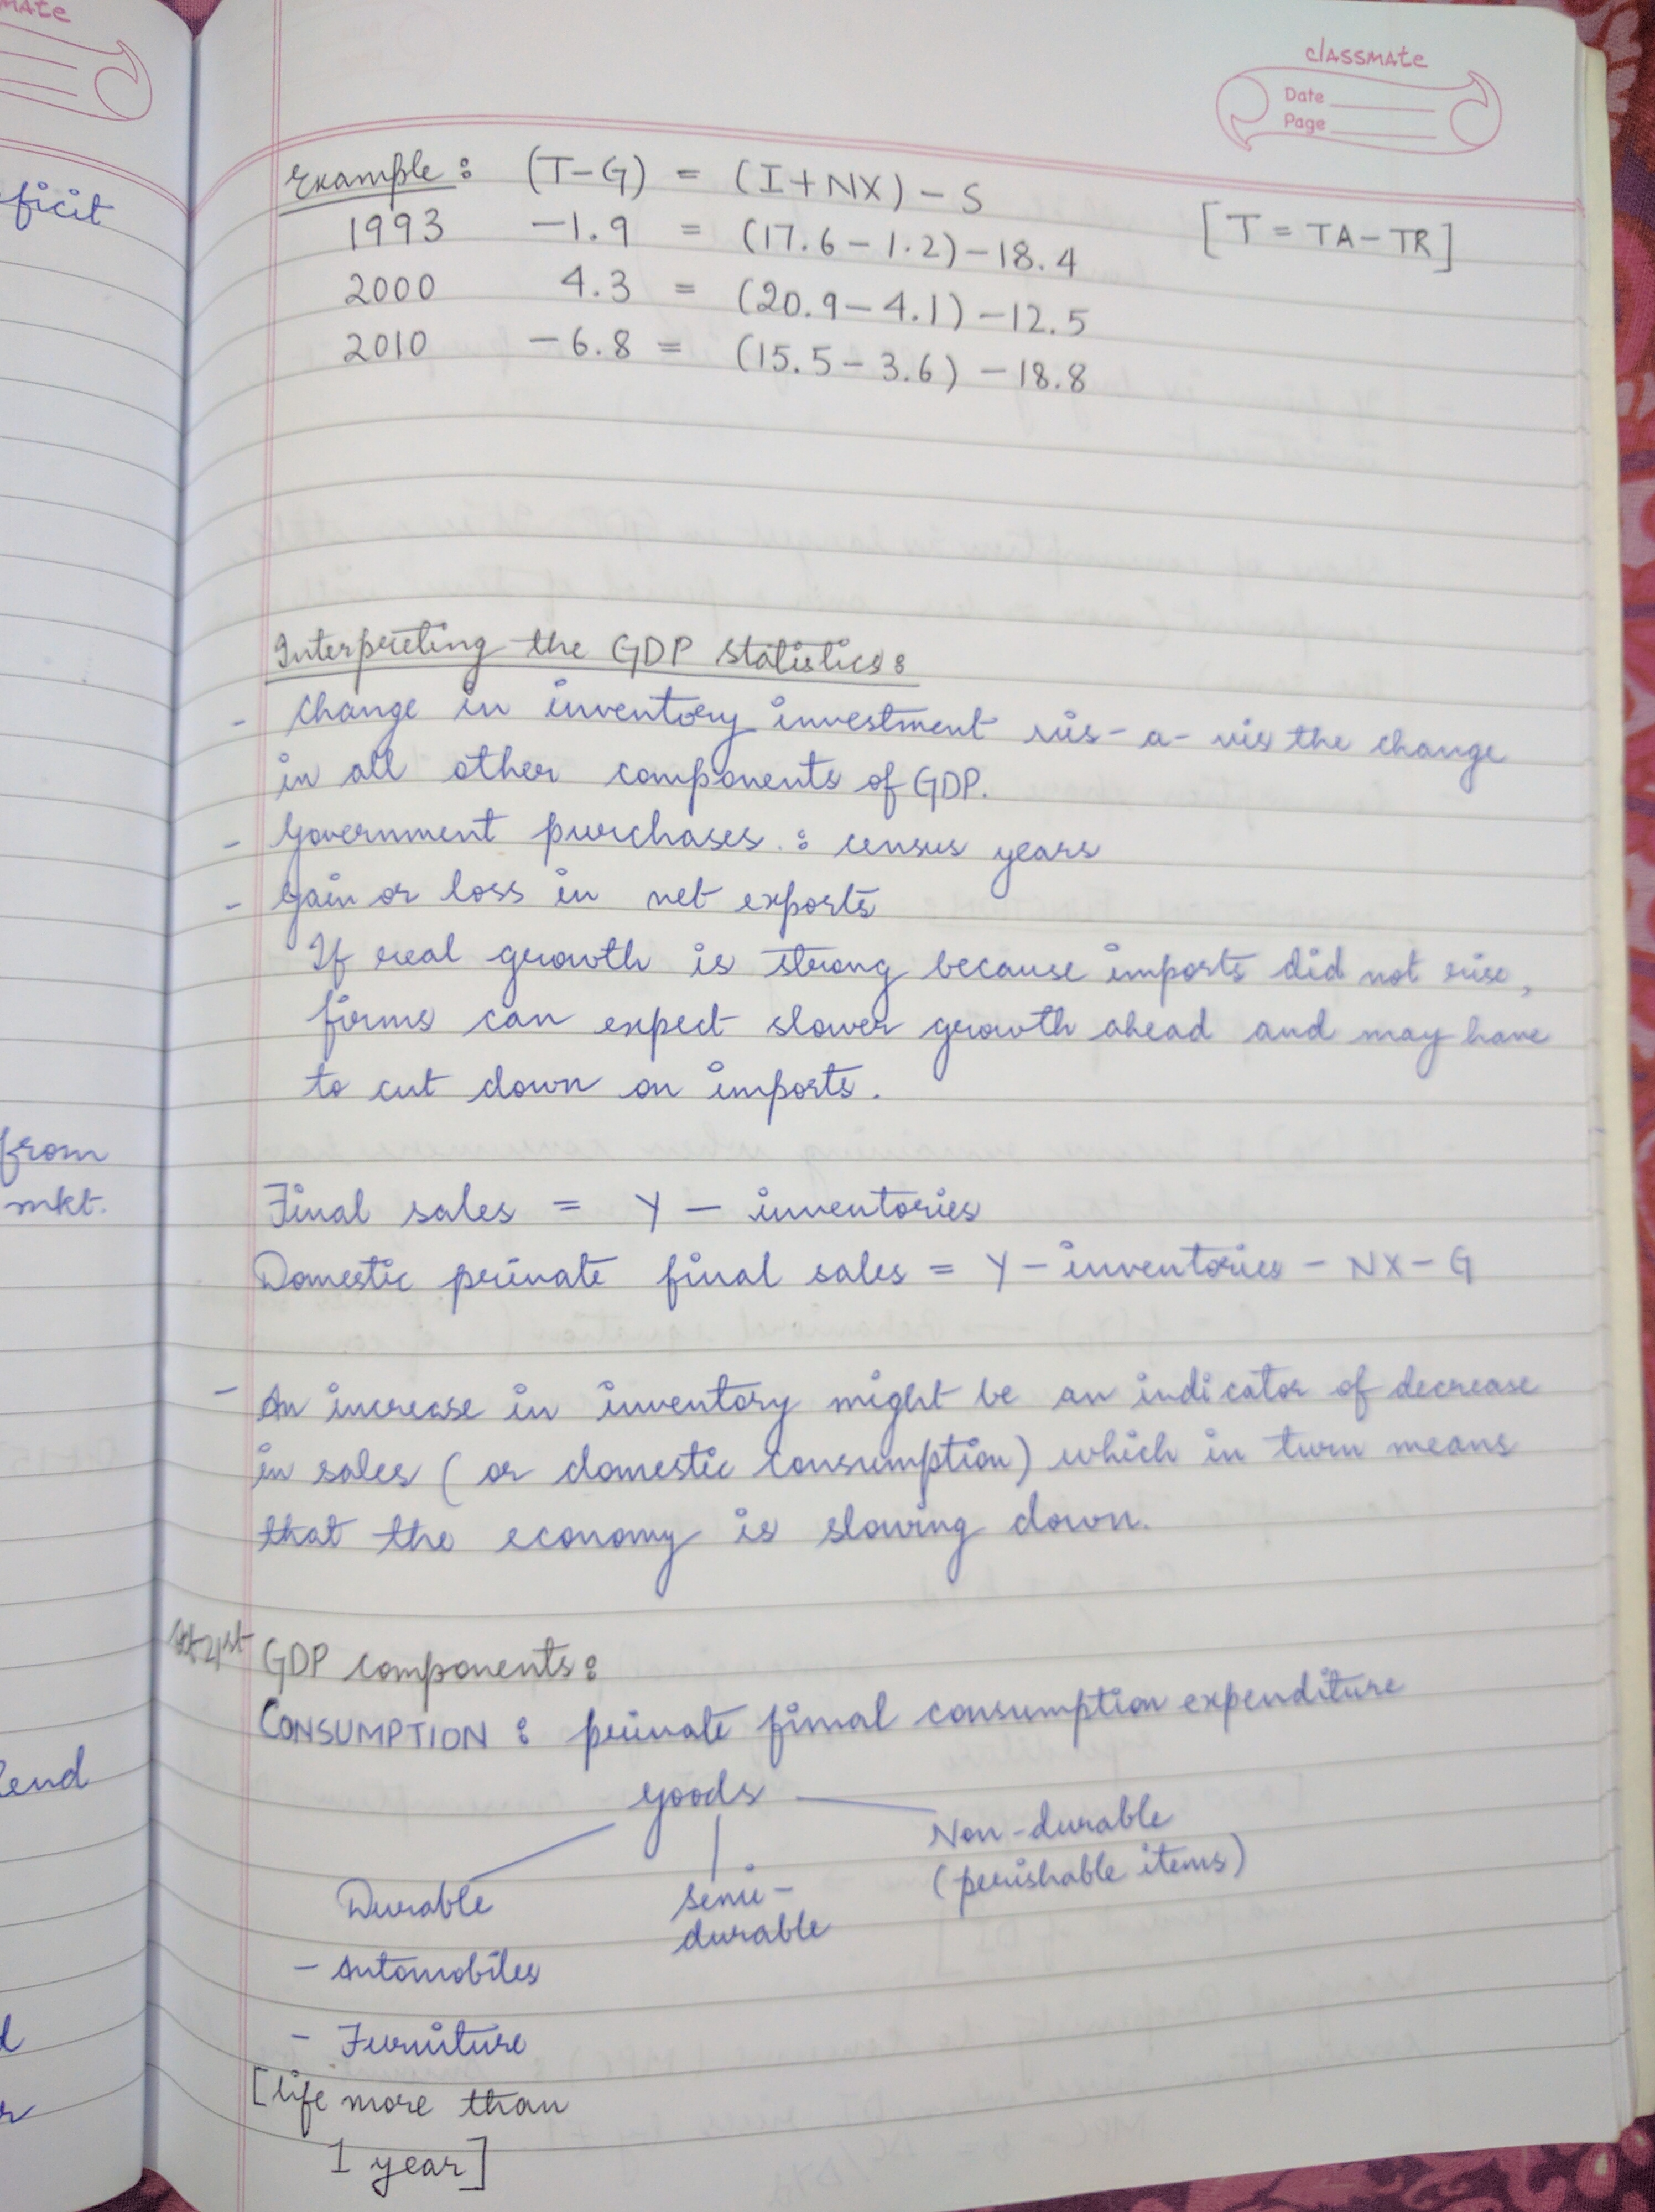 mate
classmate
Date
Page
ficit
from
mkt.
lend
Example : (T-G) = (I+NX) - S
[T = TA - TR]
1993 -1.9 = (17.6 - 1.2) - 18.4
2000 4.3 = (20.9 - 4.1) - 12.5
2010 -6.8 = (15.5 - 3.6) - 18.8
Interpreting the GDP statistics :
- Change in inventory investment vis-a-vis the change
in all other components of GDP.
- Government purchases : census years
- Gain or loss in net exports
If real growth is strong because imports did not rise,
firms can expect slower growth ahead and may have
to cut down on imports.
Final sales = Y - inventories
Domestic private final sales = Y - inventories - NX - G
- An increase in inventory might be an indicator of decrease
in sales (or domestic consumption) which in turn means
that the economy is slowing down.
GDP components :
CONSUMPTION : private final consumption expenditure
goods
Durable
semi-
durable
Non-durable
(perishable items)
- Automobiles
- Furniture
[life more than
1 year]